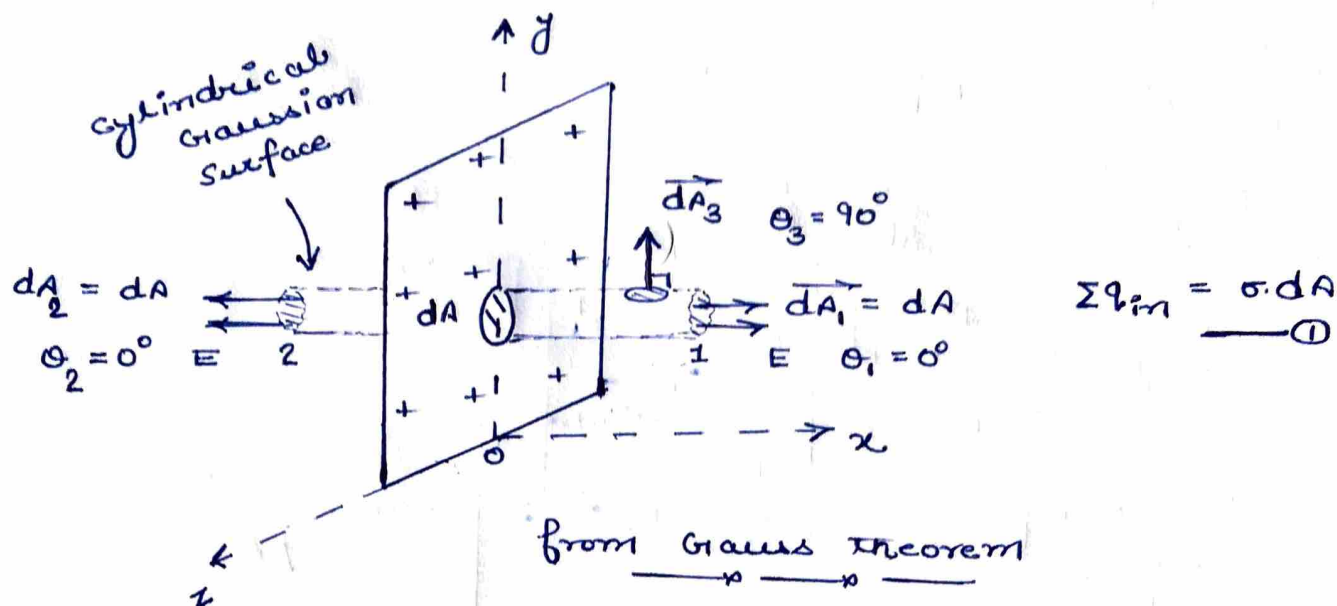 y
cylindrical
Gaussion
Surface
+ + +
+ + +
+ + +
dA₃ θ₃ = 90°
dA₂ = dA
θ₂ = 0° E 2
dA
dA₁ = dA
1 E θ₁ = 0°
Σq_in = σ.dA
①
0
x
z
from Gauss theorem